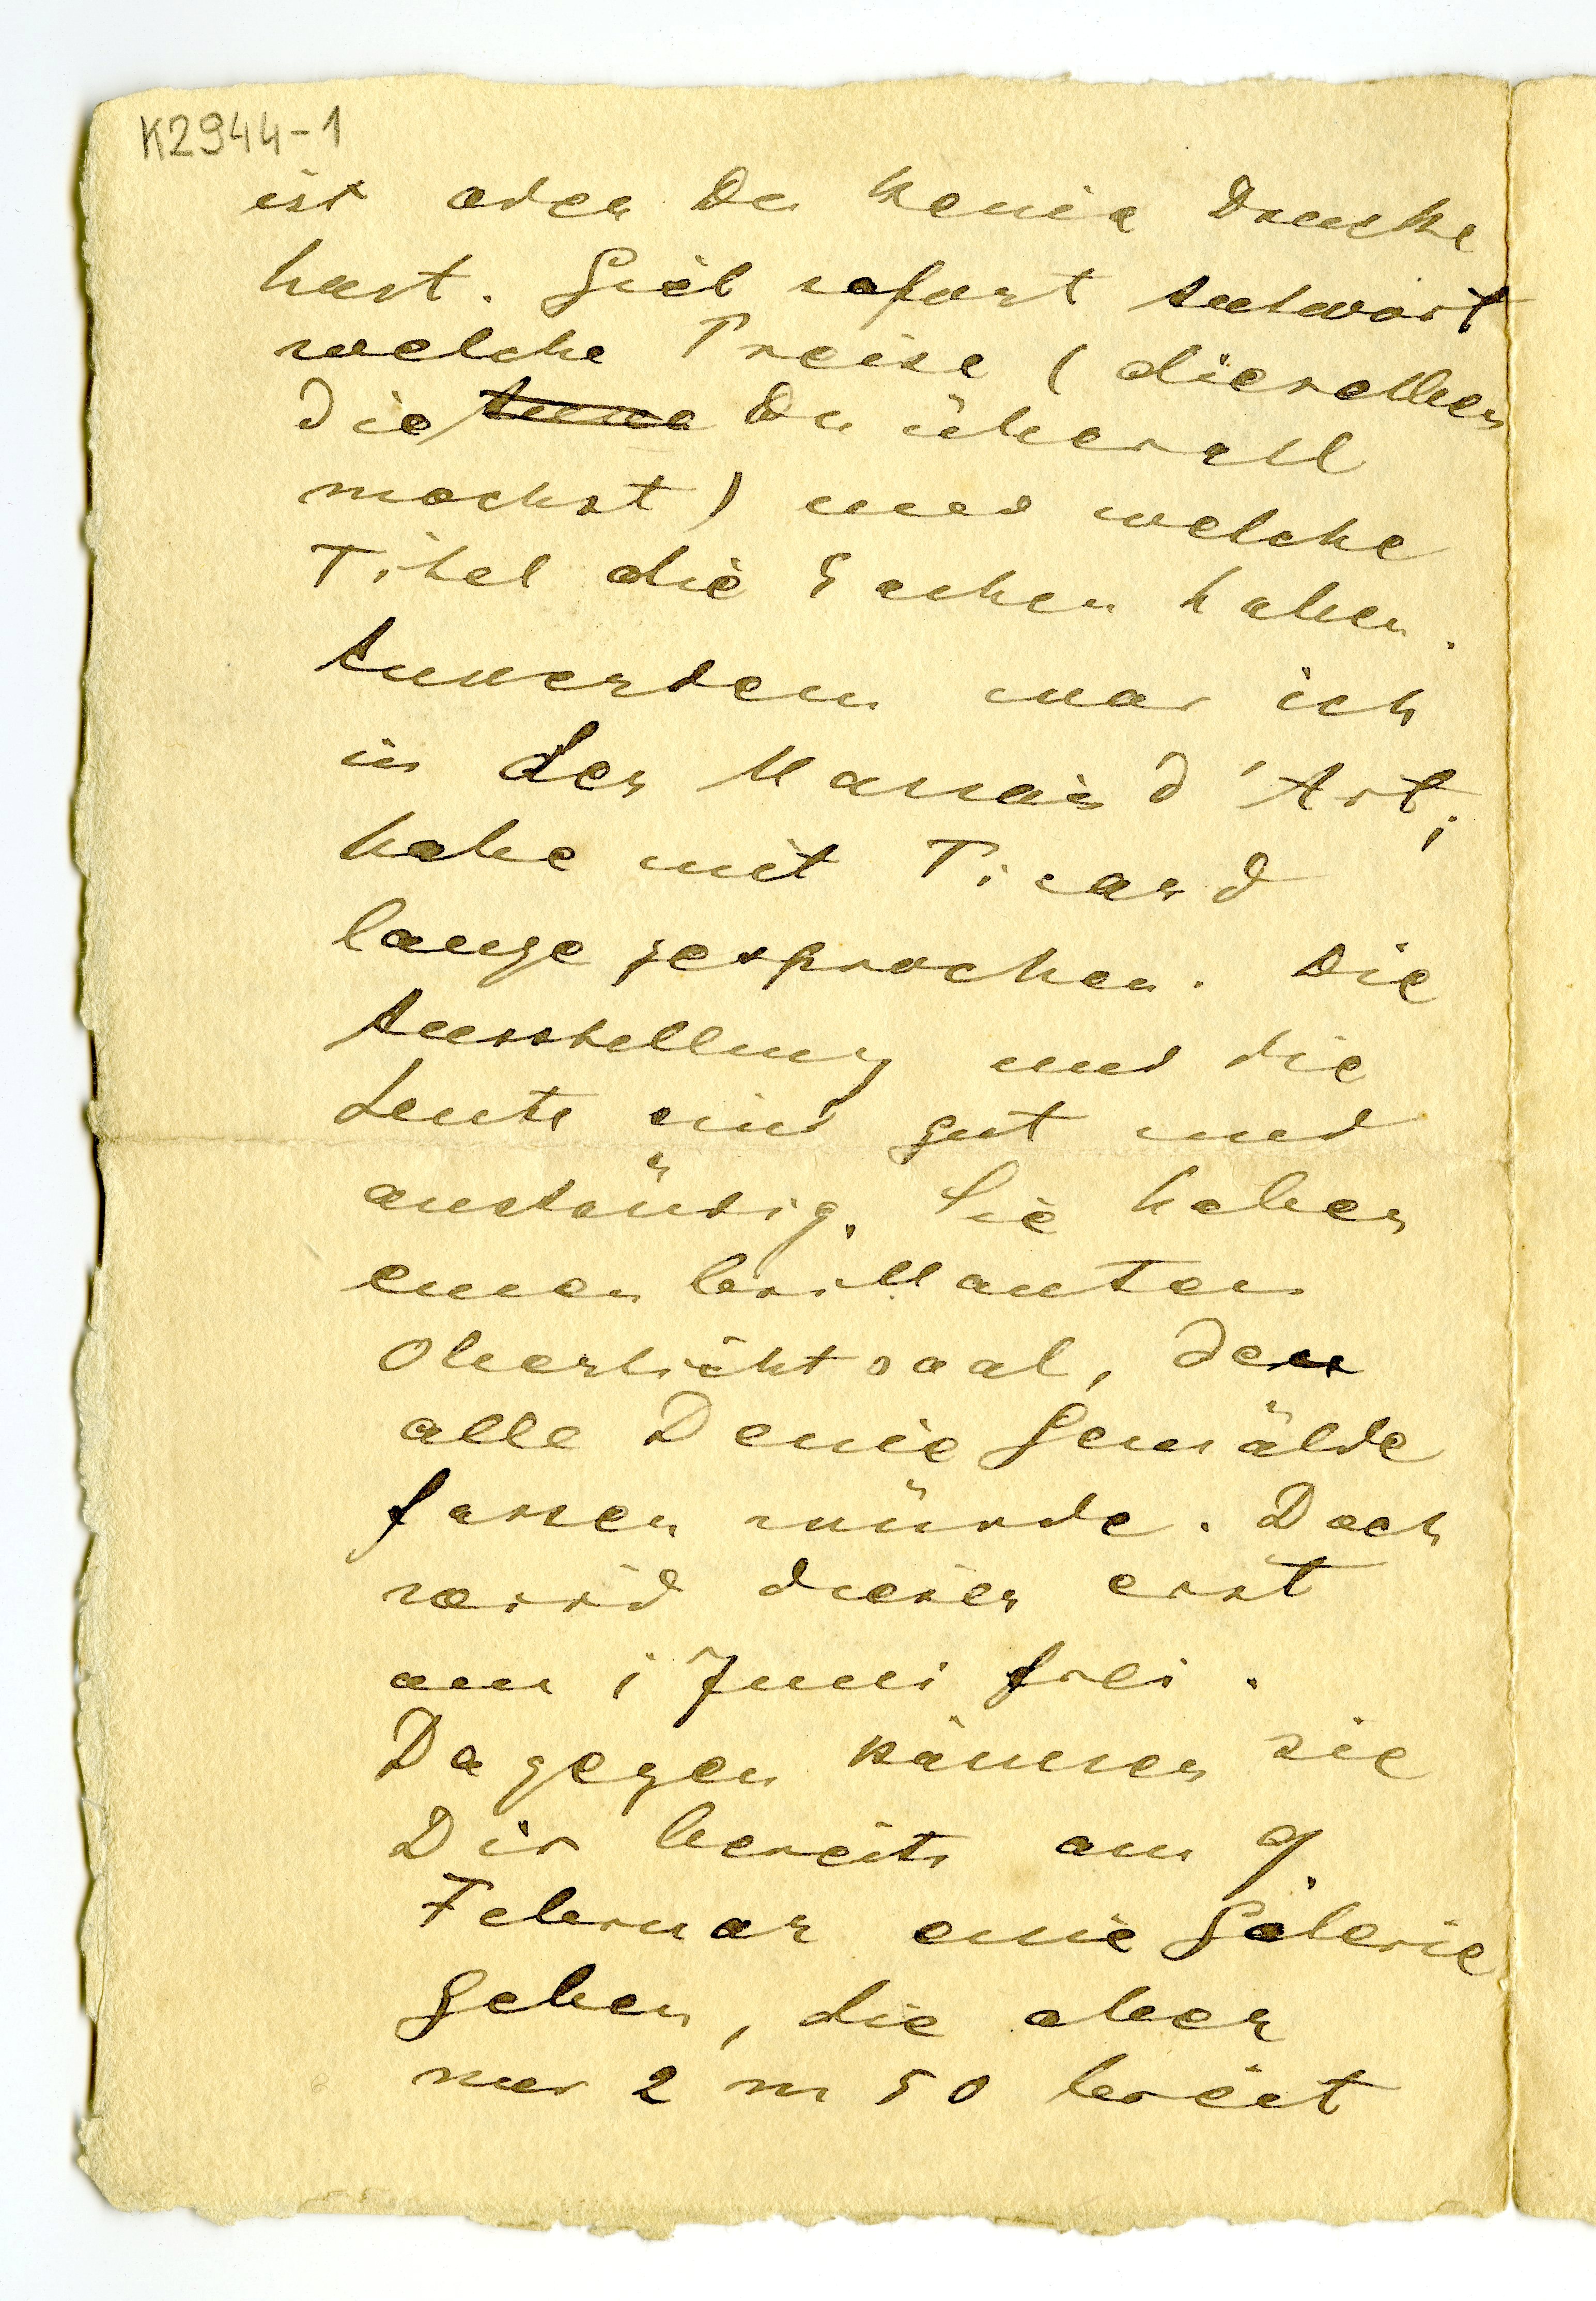 K2944-1
ist oder Du keine Drucke
hast. Gieb sofort Antwort
welche Preise (dieselben
die Du überall
machst) und welche
Titel die Sachen haben.
Ausserdem war ich
in der Maison d'Art;
habe mit Picard
lange gesprochen. Die
Ausstellung und die
Leute sind gut und
anständig. Sie haben
einen brillanten
Oberlichtsaal, der
alle Deine Gemälde
fassen würde. Doch
wird dieser erst
am 1 Juni frei.
Dagegen können sie
Dir bereits am 9.
Februar eine Galerie
geben, die aber
nur 2 m 50 breit